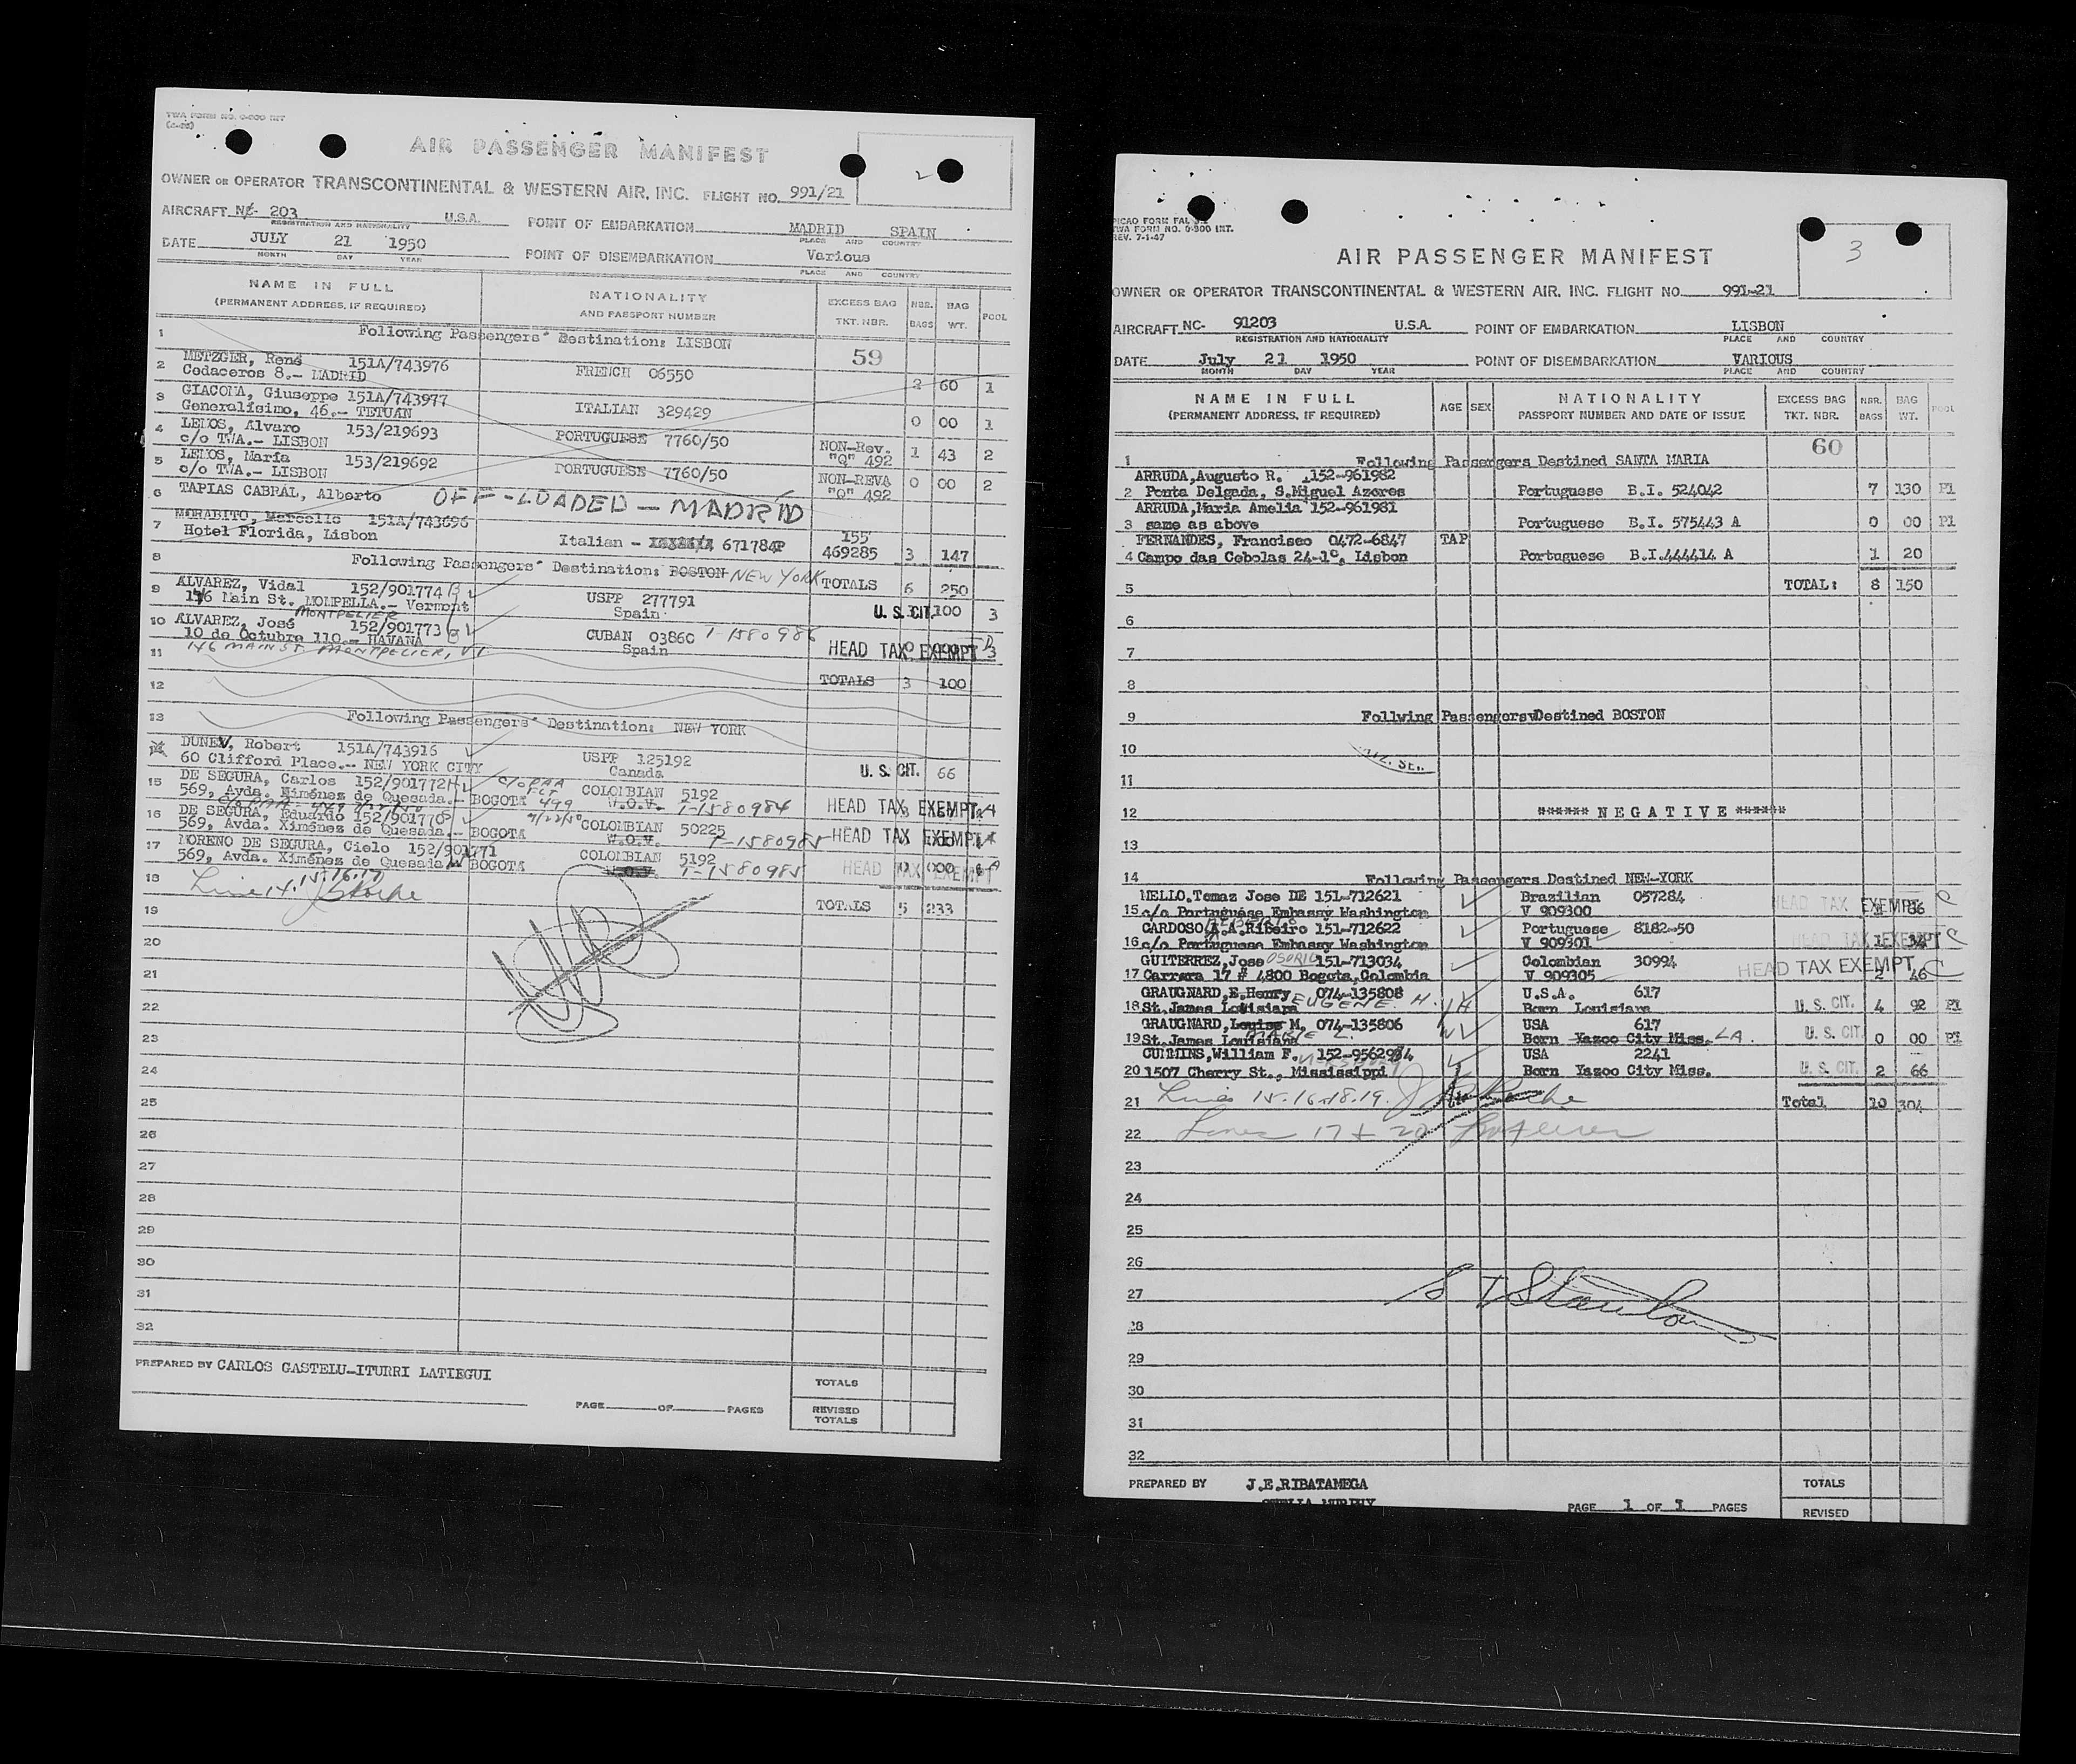 TWA FORM NO. 0-800 INT
AIR PASSENGER MANIFEST
2
OWNER OR OPERATOR TRANSCONTINENTAL & WESTERN AIR, INC. FLIGHT NO. 991/21
AIRCRAFT NC- 203 U.S.A. POINT OF EMBARKATION MADRID SPAIN
REGISTRATION AND NATIONALITY PLACE AND COUNTRY
DATE JULY 21 1950 POINT OF DISEMBARKATION Various
MONTH DAY YEAR PLACE AND COUNTRY
NAME IN FULL NATIONALITY EXCESS BAG NBR. BAG POOL
(PERMANENT ADDRESS, IF REQUIRED) AND PASSPORT NUMBER TKT. NBR. BAGS WT.
1 Following Passengers' Destination: LISBON 59
METZGER, René 151A/743976
2 Codaceros 8.- MADRID FRENCH 06550 2 60 1
GIACOMA, Giuseppe 151A/743977
3 Generalísimo, 46.- TETUAN ITALIAN 329429 0 00 1
LEMOS, Alvaro 153/219693
4 c/o TWA.- LISBON PORTUGUESE 7760/50 NON-Rev. "Q" 492 1 43 2
LEMOS, María 153/219692
5 c/o TWA.- LISBON PORTUGUESE 7760/50 NON-REVA "Q" 492 0 00 2
6 TAPIAS CABRAL, Alberto OFF-LOADED - MADRID
MORABITO, Marcello 151A/743696
7 Hotel Florida, Lisbon Italian - 671784P 155 469285 3 147
8 Following Passengers' Destination: BOSTON NEW YORK TOTALS 6 250
ALVAREZ, Vidal 152/901774 B
9 146 Main St. MOMPELLA.- Vermont USPP 277791 Spain U. S. CIT. 100 3
MONTPELIER
ALVAREZ, José 152/901773
10 10 de Octubre 110.- HAVANA CUBAN 03860 Spain T-1580986 HEAD TAX EXEMPT 3
11 146 MAIN ST. MONTPELIER, VT
12 TOTALS 3 100
13 Following Passengers' Destination: NEW YORK
DUNEV, Robert 151A/743916
60 Clifford Place.-- NEW YORK CITY USPP 125192 Canada U. S. CIT. 66
15 DE SEGURA, Carlos 152/901772 c/o PAA FLT 499
569, Avda. Ximénez de Quesada.- BOGOTA COLOMBIAN 5192 W.O.V. T-1580984 HEAD TAX EXEMPT
16 DE SEGURA, Eduardo 152/901770 7/22/50
569, Avda. Ximénez de Quesada.- BOGOTA COLOMBIAN 50225 W.O.V. T-1580985 HEAD TAX EXEMPT
17 MORENO DE SEGURA, Cielo 152/901771
569, Avda. Ximénez de Quesada BOGOTA COLOMBIAN 5192 W.O.V. T-1580985 HEAD TAX EXEMPT 000
18 Line 14. 15.16.17
19 TOTALS 5 233
20
21
22
23
24
25
26
27
28
29
30
31
32
PREPARED BY CARLOS GASTELU-ITURRI LATIEGUI
TOTALS
PAGE OF PAGES REVISED TOTALS
ICAO FORM FAL
TWA FORM NO. 0-800 INT.
REV. 7-1-47
3
AIR PASSENGER MANIFEST
OWNER OR OPERATOR TRANSCONTINENTAL & WESTERN AIR, INC. FLIGHT NO. 991-21
AIRCRAFT NC- 91203 U.S.A. POINT OF EMBARKATION LISBON
REGISTRATION AND NATIONALITY PLACE AND COUNTRY
DATE July 21 1950 POINT OF DISEMBARKATION VARIOUS
MONTH DAY YEAR PLACE AND COUNTRY
NAME IN FULL AGE SEX NATIONALITY EXCESS BAG NBR. BAG POOL
(PERMANENT ADDRESS, IF REQUIRED) PASSPORT NUMBER AND DATE OF ISSUE TKT. NBR. BAGS WT.
60
1 Following Passengers Destined SANTA MARIA
ARRUDA,Augusto R. 152-961982
2 Ponta Delgada, S.Miguel Azores Portuguese B.I. 524042 7 130 P1
ARRUDA,Maria Amelia 152-961981
3 same as above Portuguese B.I. 575443 A 0 00 P1
FERNANDES, Francisco 0472-6847 TAP
4 Campo das Cebolas 24-1º, Lisbon Portuguese B.I.444414 A 1 20
5 TOTAL: 8 150
6
7
8
9 Follwing Passengers Destined BOSTON
10
11
12 ****** NEGATIVE ******
13
14 Following Passengers Destined NEW-YORK
MELLO,Tomaz Jose DE 151-712621 Brazilian 057284
15 c/o Portuguese Embassy Washington V 909300 HEAD TAX EXEMPT 86
CARDOSO, A.A.Ribeiro 151-712622 Portuguese 8182-50
16 c/o Portuguese Embassy Washington V 909301 HEAD TAX EXEMPT 1
GUITERREZ,Jose OSORIO 151-713034 Colombian 30994
17 Carrera 17 # 4800 Bogota,Colombia V 909305 HEAD TAX EXEMPT 2 46
GRAUGNARD,E.Henry 074-135808 EUGENE H. U.S.A. 617
18 St.James Louisiana Born Louisiana U. S. CIT. 4 92 P1
GRAUGNARD,Louise M. 074-135806 USA 617
19 St.James Louisiana MARIE L. Born Yazoo City Miss. LA. U. S. CIT. 0 00 P1
CUMMINS,William F. 152-956294 USA 2241
20 1507 Cherry St., Mississippi Born Yazoo City Miss. U. S. CIT. 2 66
21 Lines 15.16.18.19. Total 10 304
22 Lines 17 + 20
23
24
25
26
27
28
29
30
31
32
PREPARED BY J.E.RIBATAMEGA TOTALS
PAGE 1 OF 1 PAGES REVISED